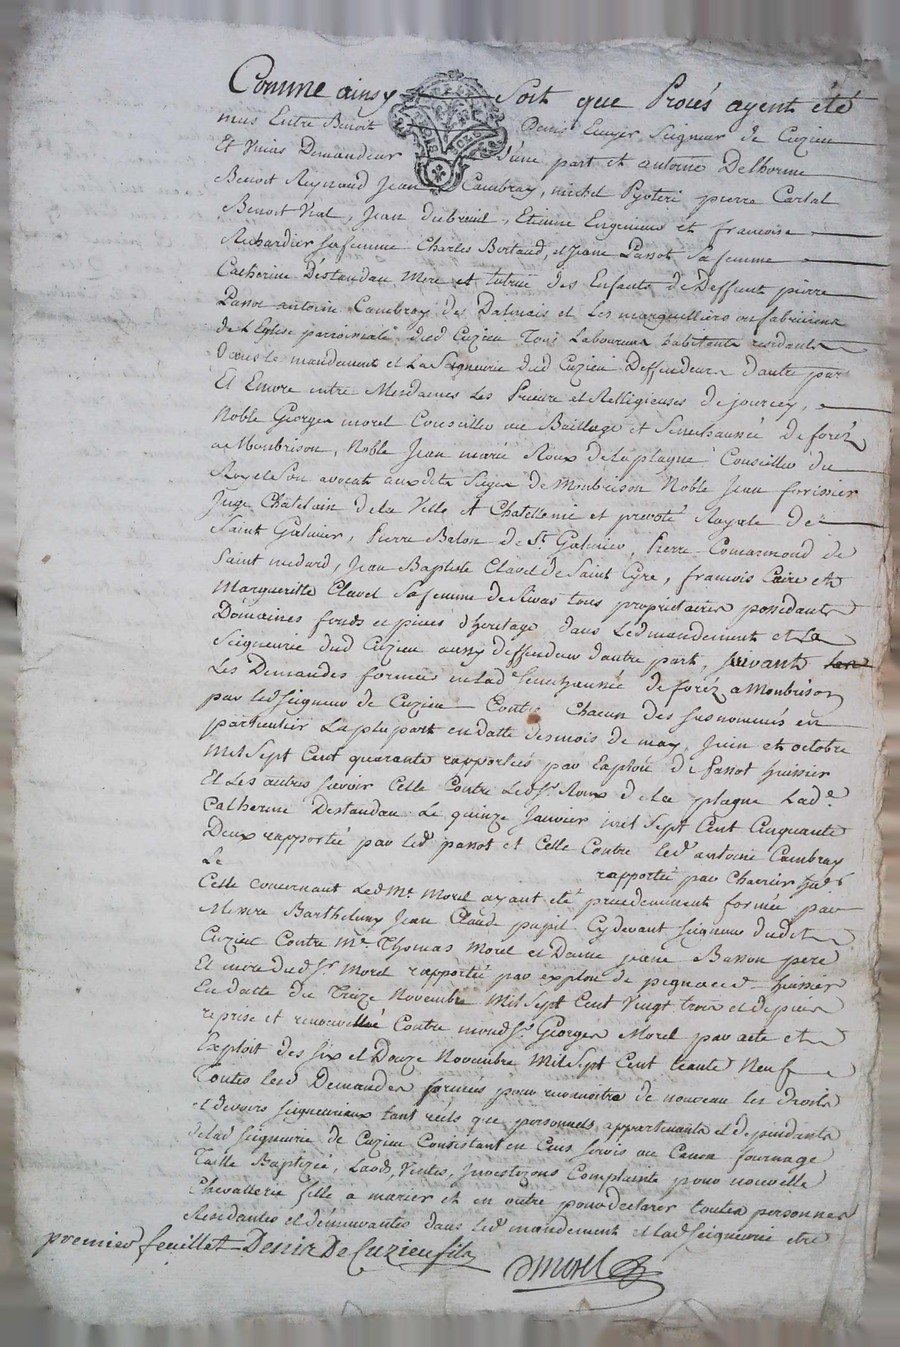 Comme ainsy Soit que Procés ayent été
mus Entre Benoit Denis Ecuyer Seigneur de Cuzieu
Et Unias Demandeur d'une part et antoine Delhorme
Benoit Reynaud Jean Cambray, michel Pyoteri pierre Cartal
Benoit Vial, Jean dubreuil, Etienne Engenieux et francoise
Richardier sa femme Charles Bertaud, et Jeane Passot Sa femme
Catherine Destandau Mere et tutrice des Enfants de Deffunt pierre
Passot antoine Cambray des Dalmais et Les marguilliers ou fabriciens
de L'Eglise parroissiale dud Cuzieu Tous Laboureurs habitants residants
Dans le mandement et La Seigneurie dud Cuzieu Deffendeurs d'autre part
Et Encore entre Mesdames Les Prieure et Relligieuses de jourcey,
Noble Georges morel Conseiller au Bailliage et Senechaussée de forêz
a Monbrison, Noble Jean marie Roux de la plagne Conseiller du
Roy et Son avocat auxdits Sieges de Monbrison Noble Jean forissier
Juge Chatelain de la Ville Et Chatellenie et prevoté Royale de
Saint Galmier, Pierre Balon de St. Galmier, Pierre Comarmond de
Saint medard, Jean Baptiste Clavel de Saint Cyre, francois Caire et
Margueritte Clavel Sa femme de Rivas tous proprietaires possedants
Domaines fonds et pieces d'heritage dans Led mandement et La
Seigneurie dud Cuzieu aussy deffendeurs d'autre part, suivants
Les Demandes formées en lad Senechaussée de foréz a Monbrison
par led Seigneur de Cuzieu Contre Chacun des susnommés en
particulier La plupart en datte des mois de may, Juin et octobre
Mil Sept Cent quarante rapportées par Exploit de Passot huissier
Et Les autres scavoir Celle Contre Led Sr. Roux de La plagne Lade.
Catherine Destandau Le quinze Janvier mil Sept Cent Cinquante
Deux rapporté par led passot et Celle Contre led antoine Cambray
Le rapporté par Charrier
Celle concernant Led Me. Morel ayant été precedemment formée par
Messire Barthelemy Jean Claude pupil Cy devant seigneur dudit
Cuzieu Contre Me Thomas Morel et Dame jeane Basson pere
Et mere dud Sr. Morel rapporté par exploit de pegnaud huissier
En datte du Treize Novembre Mil Sept Cent Vingt trois et depuis
reprise et renouvellée Contre mond Sr. Georges Morel par acte et
Exploit des six et Douze Novembre Mil Sept Cent trente Neuf
Toutes lesd Demandes formées pour reconnoitre de nouveau les droits
et devoirs seigneuriaux tant réels que personnels appartenants et dependants
de lad seigneurie de Cuzieu Consistant en Cens servis au Canon fournage
Taille Baptizée, Laods, Ventes, Investizons Complainte pour nouvelle
Chevallerie fille a marier et en outre pour declarer toutes personnes
Residantes et demeurantes dans led mandement et lad Seigneurie etre
premier feuillet Denis De Cuzieu fils
Morel